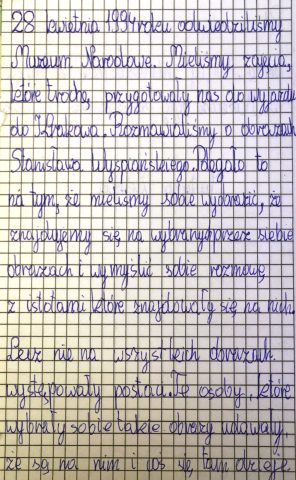 28 kwietnia 1994 roku odwiedziliśmy
Muzeum Narodowe. Mieliśmy zajęcia,
które trochę przygotowały nas do wyjazdu
do Krakowa. Rozmawialiśmy o obrazach
Stanisława Wyspiańskiego. Polegało to
na tym, że mieliśmy sobie wyobrazić, że
znajdujemy się na wybranych przez siebie
obrazach i wymyślić sobie rozmowę
z istotami które znajdowały się na nich.
Lecz nie na wszystkich obrazach
występowały postaci. Te osoby, które
wybrały sobie takie obrazy udawały,
że są na nim i coś się tam dzieje